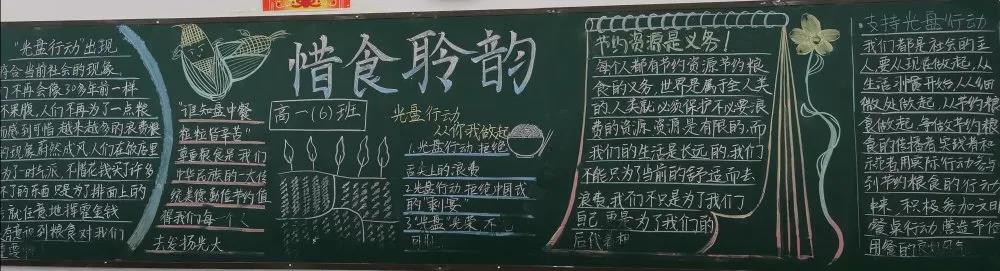 "光盘行动"出现
符合当前社会的现象,
门不再会像30多年前一样
不果腹,人们不再为了一点粮
而感到可惜 越来越多的浪费粮
的现象蔚然成风人们在饭店里
为了一时玩派 不惜花钱买了许多
不了的东西 只是为了排面上的
就任意地挥霍金钱
粮食对我们
"谁知盘中餐
粒粒皆辛苦"
尊重粮食是我们
中华民族的一大传
统美德,勤俭节约值
得我们每一个人
去发扬光大
惜食聆韵
高一(6)班
光盘行动
从你我做起
1.光盘行动 拒绝
舌尖上的浪费
2.光盘行动 拒绝中国式
的"剩宴"
3."光盘"光荣 不
节约资源是义务!
每个人都有节约资源节约粮
食的义务,世界是属于全人类
的,人类就必须保护不必要浪
费的资源,资源是有限的,而
我们的生活是长远的,我们
不能只为了当前的舒适而去
浪费,我们不只是为了我们
自己 更是为了我们的
后代着想
·支持光盘行动
我们都是社会的主
人要从现在做起,从
生活习惯开始,从细
微处做起,从节约粮
食做起,争做节约粮食
的传播者 实践者和
示范者用实际行动参与
到节约粮食的行动
中来 积极参加文明
餐桌行动 营造节俭
用餐的良好风气